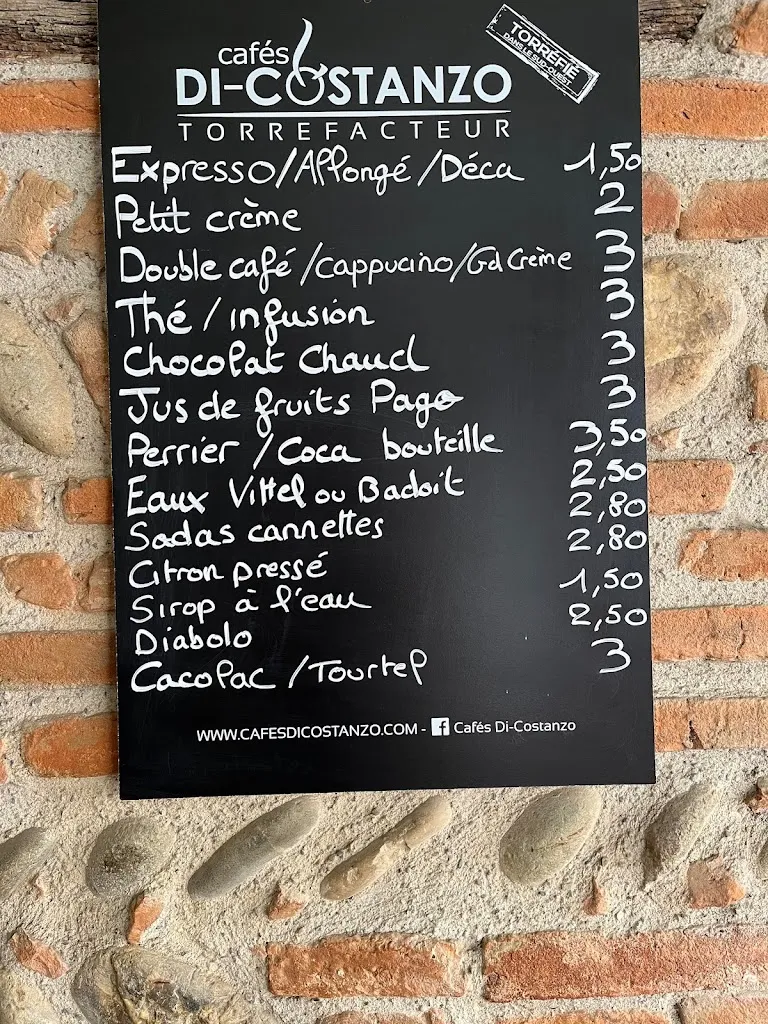 cafés
DI-COSTANZO
TORREFACTEUR
TORRÉFIÉ
DANS LE SUD-OUEST
Expresso/Allongé/Déca 1,50
Petit crème 2
Double café/cappucino/Gd Crème 3
Thé / infusion 3
Chocolat Chaud 3
Jus de fruits Pago 3
Perrier / Coca bouteille 3,50
Eaux Vittel ou Badoit 2,50
Sodas cannettes 2,80
Citron pressé 2,80
Sirop à l'eau 1,50
Diabolo 2,50
Cacolac / Tourtel 3
WWW.CAFESDICOSTANZO.COM - f Cafés Di-Costanzo